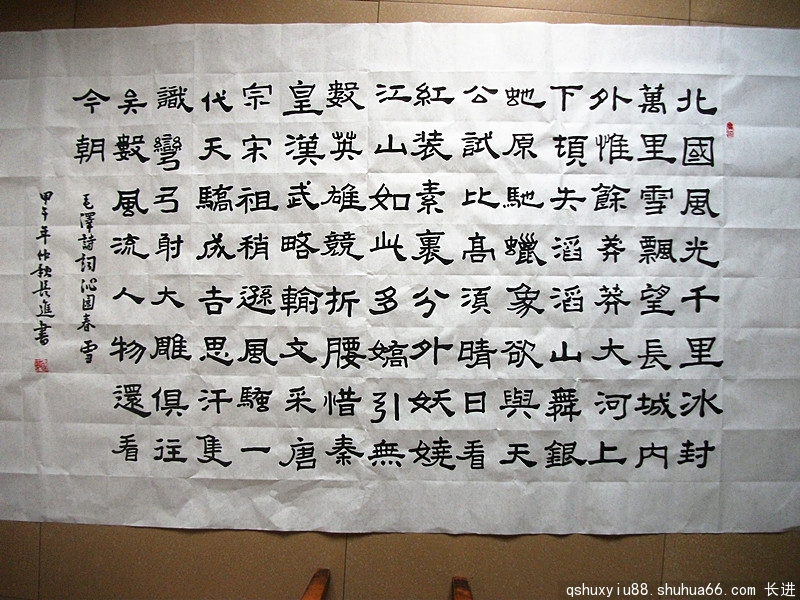 北國風光千里冰封
萬里雪飄望長城内
外惟餘莽莽大河上
下頓失滔滔山舞銀
虵原馳蠟象欲與天
公試比高須晴日看
紅装素裏分外妖嬈
江山如此多嬌引無
數英雄競折腰惜秦
皇漢武略輸文采唐
宗宋祖稍遜風騷一
代天驕成吉思汗隻
識彎弓射大雕俱往
矣數風流人物還看
今朝
毛澤詩詞沁園春雪
甲午年仲秋長進書
qshuxyiu88.shuhua66.com 长进